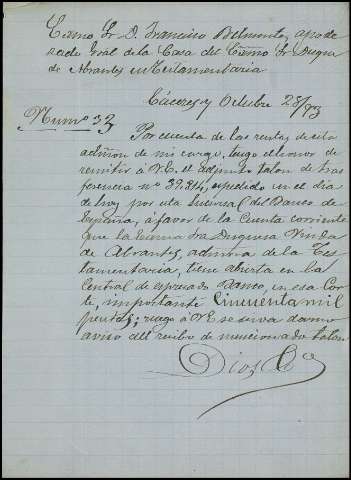 Excmo Sr D. Francisco Belmonte, apode
rado Gral de la Casa del Excmo Sr Duque
de Abrantes en Testamentaria
Cáceres y Octubre 28/93
Num.º 33
Por cuenta de las rentas de esta
admon de mi cargo, tengo el honor de
remitir á V.E. el adjunto talon de tras
ferencia nº 39.814, espedido en el dia
de hoy por esta Sucursal del Banco de
España, á favor de la Cuenta corriente
que la Excma Sra Duquesa Viuda
de Abrantes, admora de la Tes
tamentaria, tiene abierta en la
Central de espresado Banco, en esa Cor
te, importante Cincuenta mil
pesetas; ruego á V.E. se sirva darme
aviso del recibo de mencionado talon.
Dios &ª